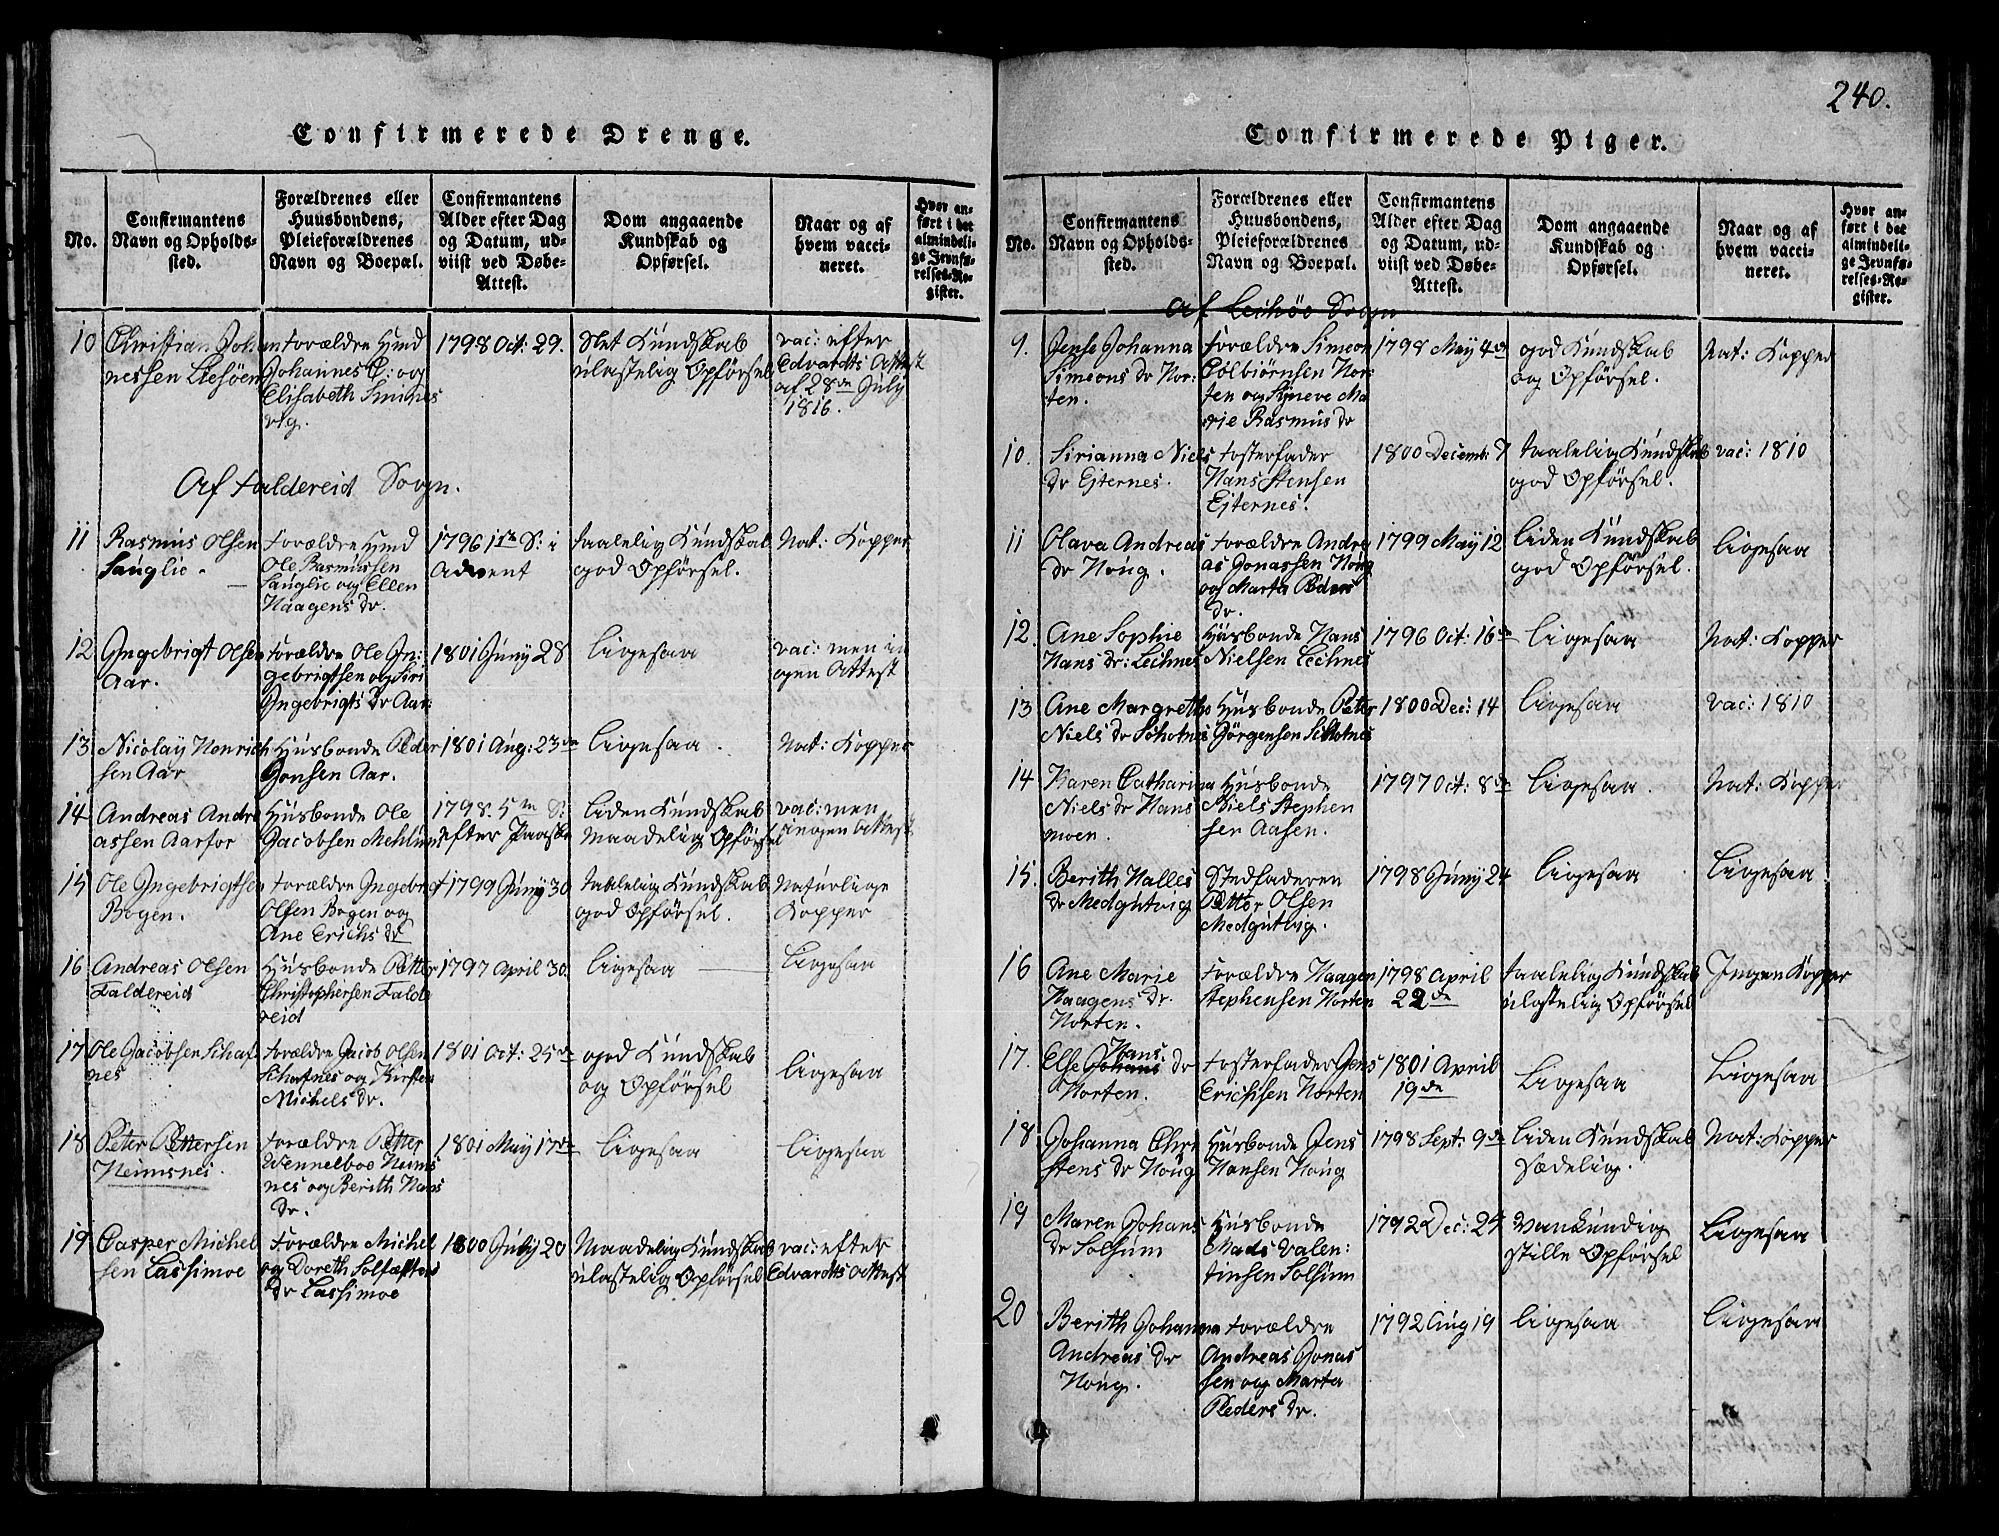 Confirmerede Drenge.
No.
Confirmantens
Navn og Opholds-
sted.
Forældrenes eller
Huusbondens,
Pleieforældrenes
Navn og Boepæl.
Confirmantens
Alder efter Dag
og Datum, ud-
viist ved Døbe-
Attest.
Dom angaaende
Kundskab og
Opførsel.
Naar og af
hvem vacci-
neret.
Hvor an-
ført i det
almindeli-
ge Jevnfø-
relses-Re-
gister.
10
Christian Johan
nessen
Forældre
Johannes C: og
Elisabeth
vig.
1798 Oct: 29.
Slet Kundskab
ulastelig Opførsel
vac: efter
Edvardts Attest
af 28de July
1816.
Af Faldereid Sogn.
11
Rasmus Olsen
Sauglie.
Forældre
Ole Rasmussen
Sauglie og Ellen
Haagens dr.
1796 1ste S: i
Advent
taalelig Kundskab
god Opførsel.
Nat: Kopper
12
Ingebrigt Olsen
Aar.
Forældre Ole In:
gebrigtsen og Siri
Ingebrigts dr Aar:
1801 Juny 28
Ligesaa
vac: men in
gen Attest
13
Nicolay Henrich
sen Aar
Husbonde Peder
Jonsen Aar.
1801 Aug: 23de
Ligesaa.
Nat: Kopper
14
Andreas Andre
assen Aarfor
Husbonde Ole
Jacobsen
1798. 5te S:
efter Paaske
Liden Kundskab
Maadelig Opførsel
vac: men
ingen Attest
15
Ole Ingebrigtsen
Bogen.
Forældre Ingebrigt
Olsen Bogen og
Ane Erichs dr
1799 Juny 30
taalelig Kundskab
god Opførsel.
Naturlige
Kopper
16
Andreas Olsen
Faldereid
Husbonde Petter
Christophersen Falde
reid
1797 April 30.
Ligesaa
Ligesaa
17
Ole Jacobsen
nes
Forældre Jacob Olsen
og Kirsten
Michels dr.
1801 Oct: 25de
god Kundskab
og Opførsel
Ligesaa
18
Peter Pettersen
Heimsnes.
Forældre Petter
Wennelboe Heims
nes og Berith Hans
dr.
1801 May 17de
Ligesaa
Ligesaa
19
Casper Michel
sen Lassimoe
Forældre Michel
og Doreth
dr Lassimoe
1800 July 20
Maadelig Kundskab
ulastelig Opførsel
vac: efter
Edvardts Attest
240.
Confirmerede Piger.
No.
Confirmantens
Navn og Opholds-
sted.
Forældrenes eller
Huusbondens,
Pleieforældrenes
Navn og Boepæl.
Confirmantens
Alder efter Dag
og Datum, ud-
viist ved Døbe-
Attest.
Dom angaaende
Kundskab og
Opførsel.
Naar og af
hvem vacci-
neret.
Hvor an-
ført i det
almindeli-
ge Jevnfø-
relses-Re-
gister.
Af Leihöe Sogn
9.
Jense Johanna
Simeons dr Hor:
ten.
Forældre Simeon
Colbiørnsen Hor:
ten og Syneve Ma
rie Rasmus dr
1798 May 4de
god Kundskab
og Opførsel.
Nat: Kopper
10.
Sirianna Niels
dr Ejternes.
Fosterfader
Hans Stensen
Ejternes.
1800 Decemb: 7
taalelig Kundskab
god Opførsel.
vac: 1810
11
Olava Andreas
dr Houg.
Forældre Andre
as Jonassen Houg
og Marta Peders
dr.
1799 May 12
Liden Kundskab
god Opførsel.
Ligesaa
12.
Ane Sophie
Hans dr: Leihnes
Husbonde Hans
Nielsen Leihnes
1796 Oct: 16de
Ligesaa
Nat: Kopper
13
Ane Margrethe
Niels dr
Husbonde Petter
Jørgensen
1800 Dec: 14
Ligesaa
vac: 1810
14
Karen Catharina
Niels dr Hans
moen.
Husbonde
Niels Stephen
sen Aasen.
1797 Oct: 8de
Ligesaa.
Nat: Kopper
15.
Berith Halles
dr Medgutvig
Stedfaderen
Petter Olsen
Medgutvig.
1798 Juny 24
Ligesaa
Ligesaa
16
Ane Marie
Haagens dr.
Horten.
Forældre Haagen
Stephensen Horten
1798 April
22de
taalelig Kundskab
ulastelig Opførsel
Ingen Kopper
17.
Else Hans dr
Horten.
Fosterfader Jens
Erichsen Horten
1801 April
19de
Ligesaa
Ligesaa
18
Johanna Chri
stens dr Houg
Husbonde Jens
Hansen Houg
1798 Sept: 9de
Liden Kundskab
Sædelig.
Nat: Kopper
19
Maren Johans
dr Solsum
Husbonde
Mads Valen:
tinsen Solsum
1792 Dec: 24
Vankundig
stille Opførsel
Ligesaa
20
Berith Johanna
Andreas dr
Houg.
Forældre
Andreas Jonas
sen og Marta
Peders dr.
1792 Aug 19
Ligesaa
Ligesaa